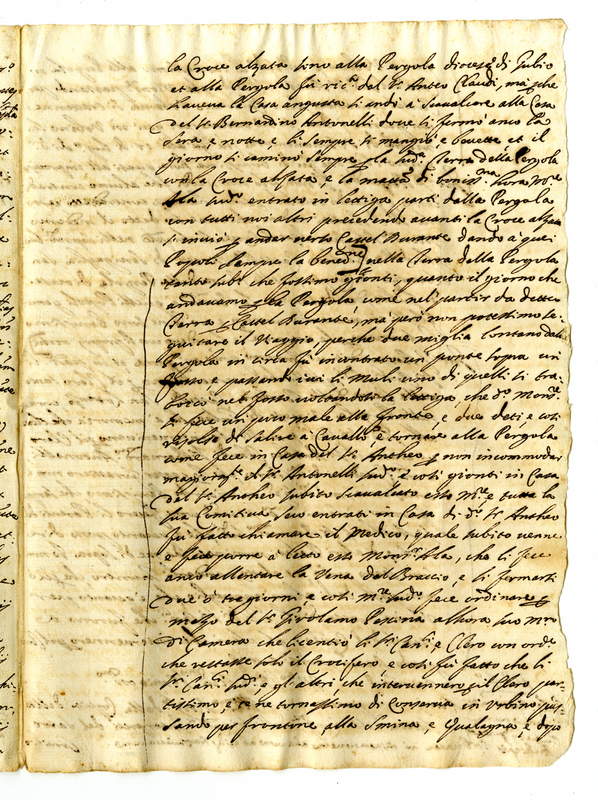 la Croce alzata sino alla Pergola diocesi di Gubio
et alla Pergola fù ric.º dal S.r Anteo Claudi, mà che
haueua la Casa angusta si andò à scaualcare alla Casa
del S.r Bernardino Antonelli doue si fermò anco la
sera, e notte e lì sempre si mangiò e beuette et il
giorno si caminò sempre p la sud.a Terra della Pergola
con la Croce alzata, e la matt.a di boniss.ma hora
sud.º entrato in lettiga partì dalla Pergola
con tutti noi altri precedendo auanti la Croce alzata
s'inuiò p andar uerso Castel Durante dando à quei
Popoli sempre la bened.ne nella Terra della Pergola
che fossimo gionti, quanto il giorno che
andauamo p la Pergola, come nel partir da detta
Terra p Castel Durante, mà però non potessimo se-
guitare il Viaggio, perche due miglia lontano dalla
Pergola in circa fù incontrato un ponte sopra un
fosso e passando iui li Muli uno di quelli si tra-
boccò nel fosso uoltandosi la lettiga, che d.º Mons.re
si fece un poco male alla fronte, e due deti, e così
risolse di salire à Cauallo, e tornare alla Pergola
come fece in Casa del S.r Antheo p non incommodar
maggiorm.te il S.r Antonelli sud.º e così gionti in Casa
del S.r Antheo subito scaualcato esso M.re e tutta la
sua Comitiua seco entrati in Casa di d.º S.r Antheo
fù fatto chiamare il Medico, quale subito uenne
e fece porre à letto esso Mons.re Ill.a, che li fece
anco allentare la Vena del Braccio, e lì fermarsi
due ò tre giorni e così M.re sud.º fece ordinare p
mezzo del S.r Girolamo Perina allora suo m.ro
di Camera che licentiò li S.ri Can.ci e Clero con ord.e
che restasse solo il Crocifero e così fù fatto che li
S.ri Can.ci sud.i e gl'altri che interuennero p il Clero par-
tissimo, e ce ne tornassimo di Conserua in Urbino pas-
sando per frontone alla Smirra, e Qualagna, e dopo